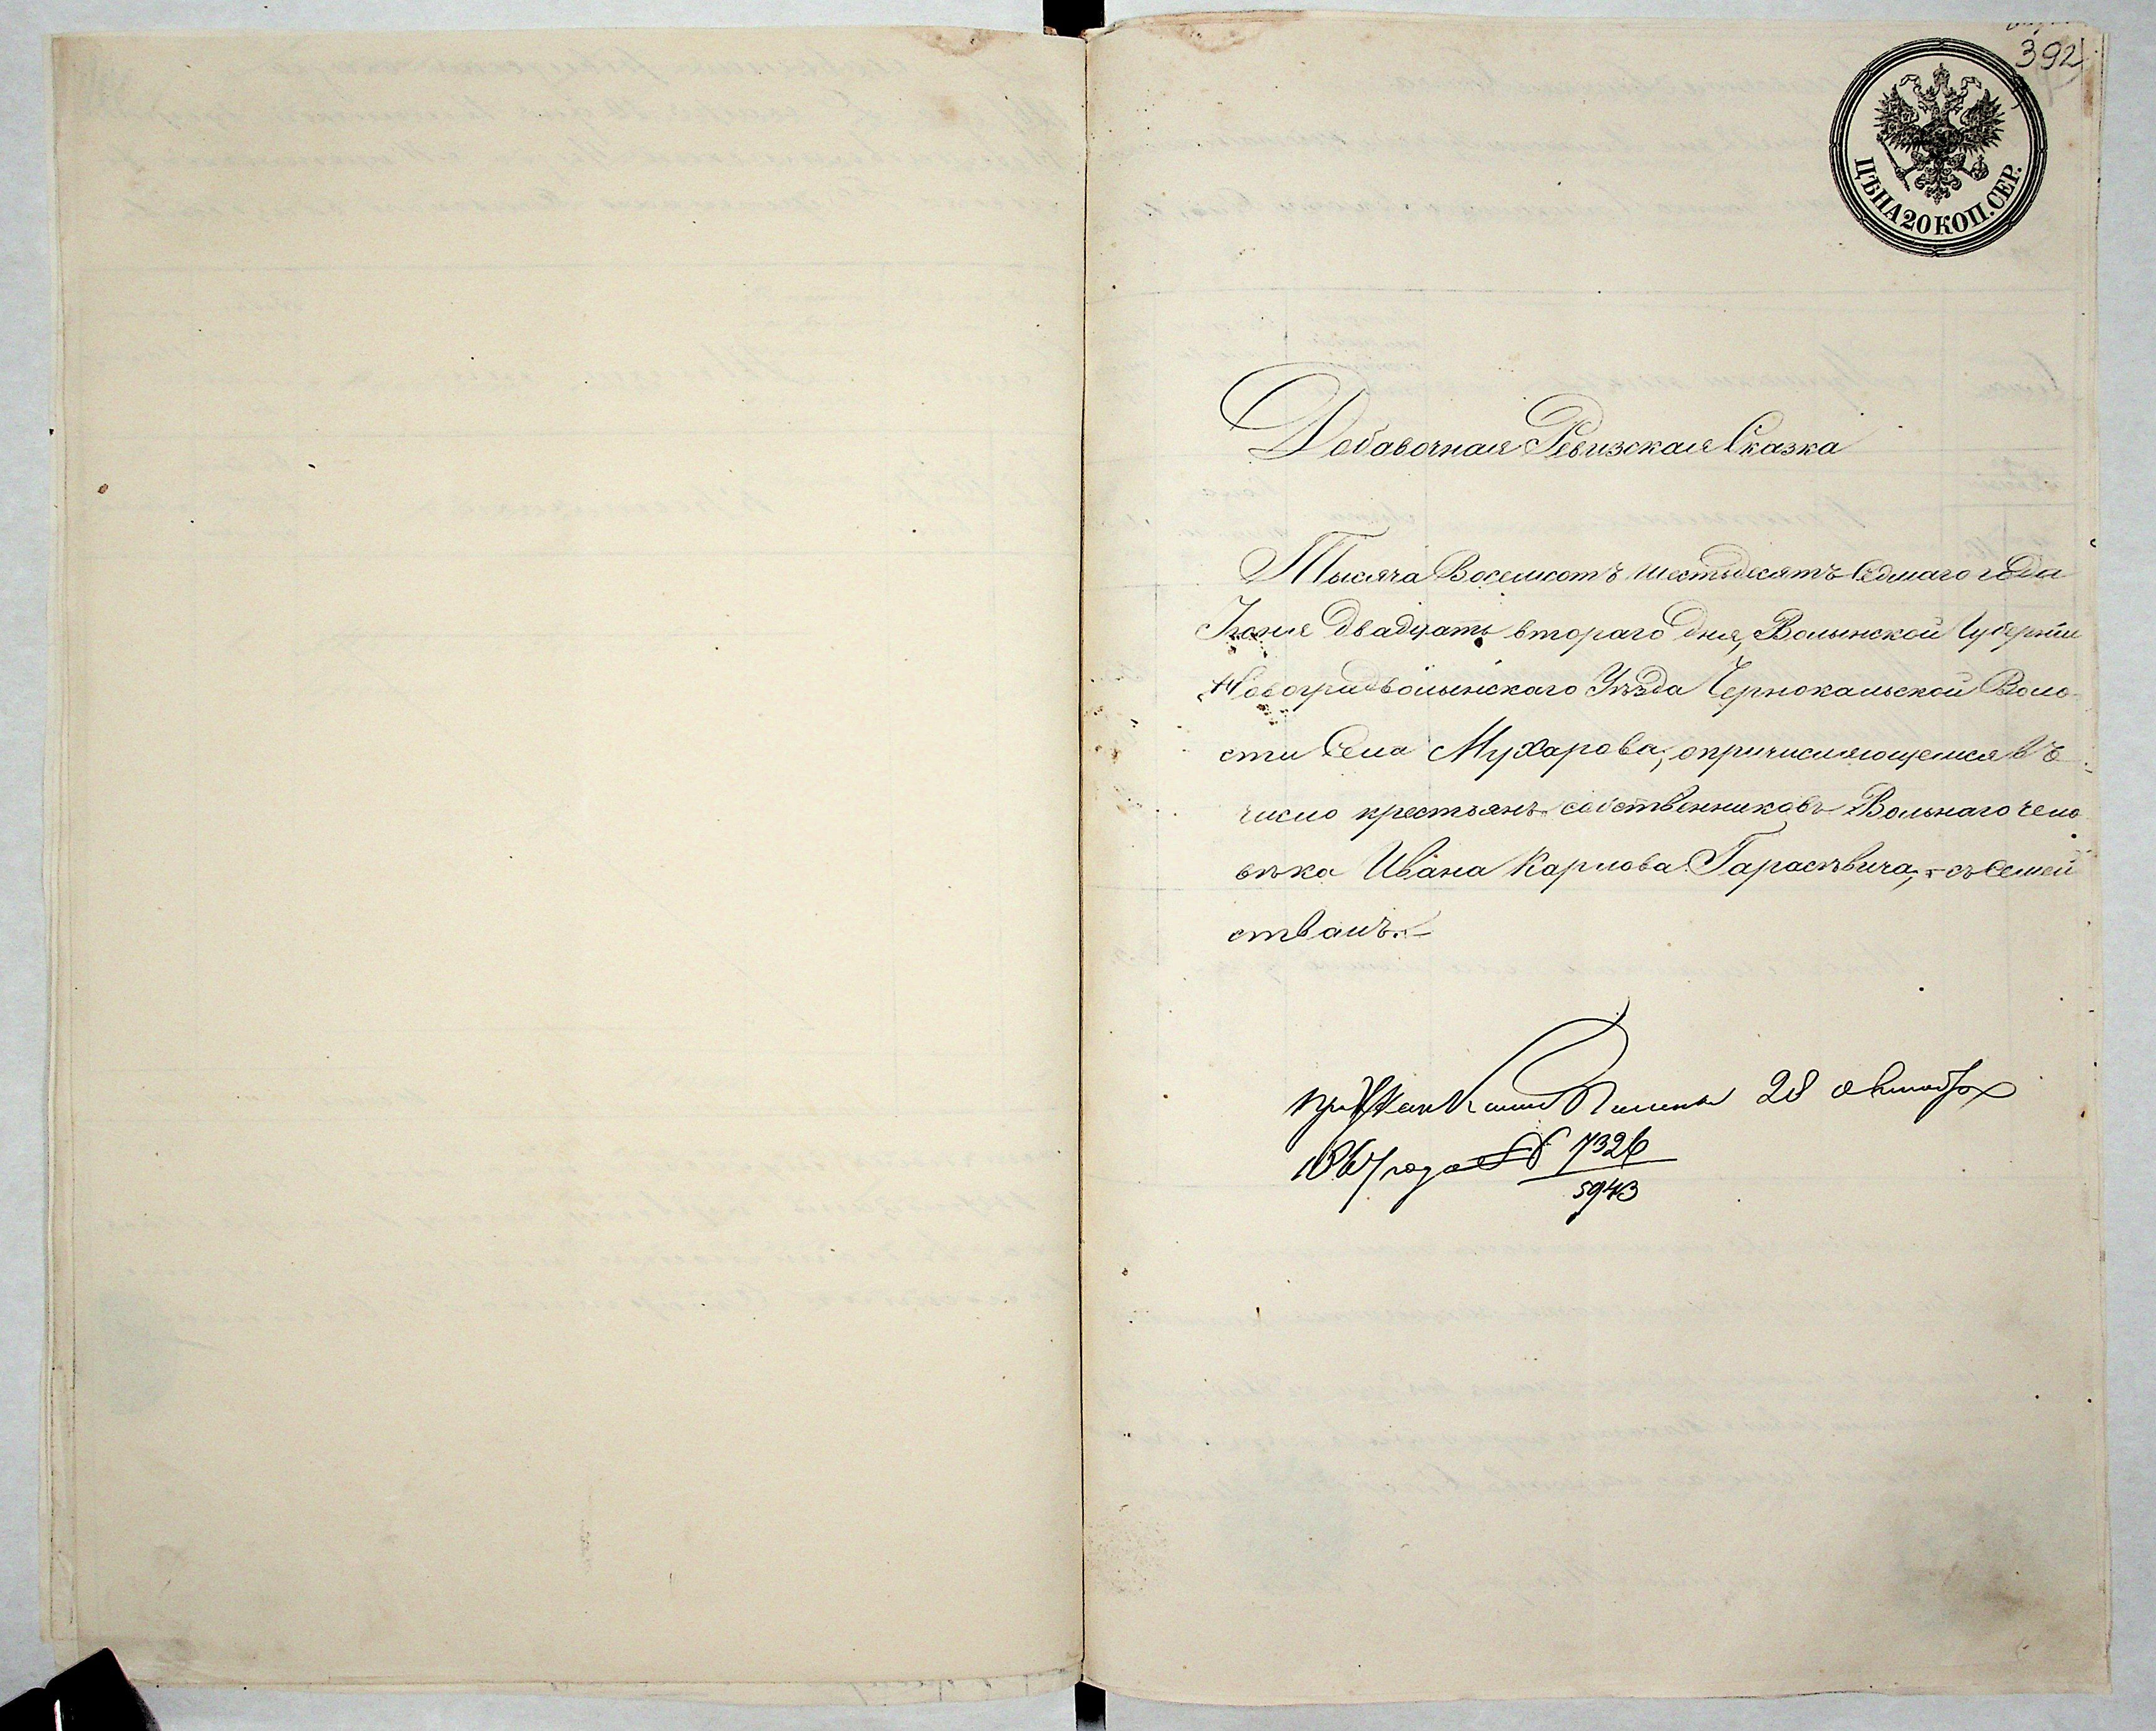 392
ЦѢНА 20 КОП. СЕР.
Добавочная Ревизская Сказка
Тысяча Восемсотъ шестьдесятъ Седмаго года
Іюня двадцать втораго дня, Волынской Губерніи
Новоградволынскаго Уѣзда Чернокальской Воло
сти Села Мухарова, о причисляющемся въ
число крестьянъ собственниковъ Вольнаго чело
вѣка Ивана Карлова Гарасѣвича, съ Семей
ствамъ.
при Палаты 28 Октября
1867 года № 7326
5943